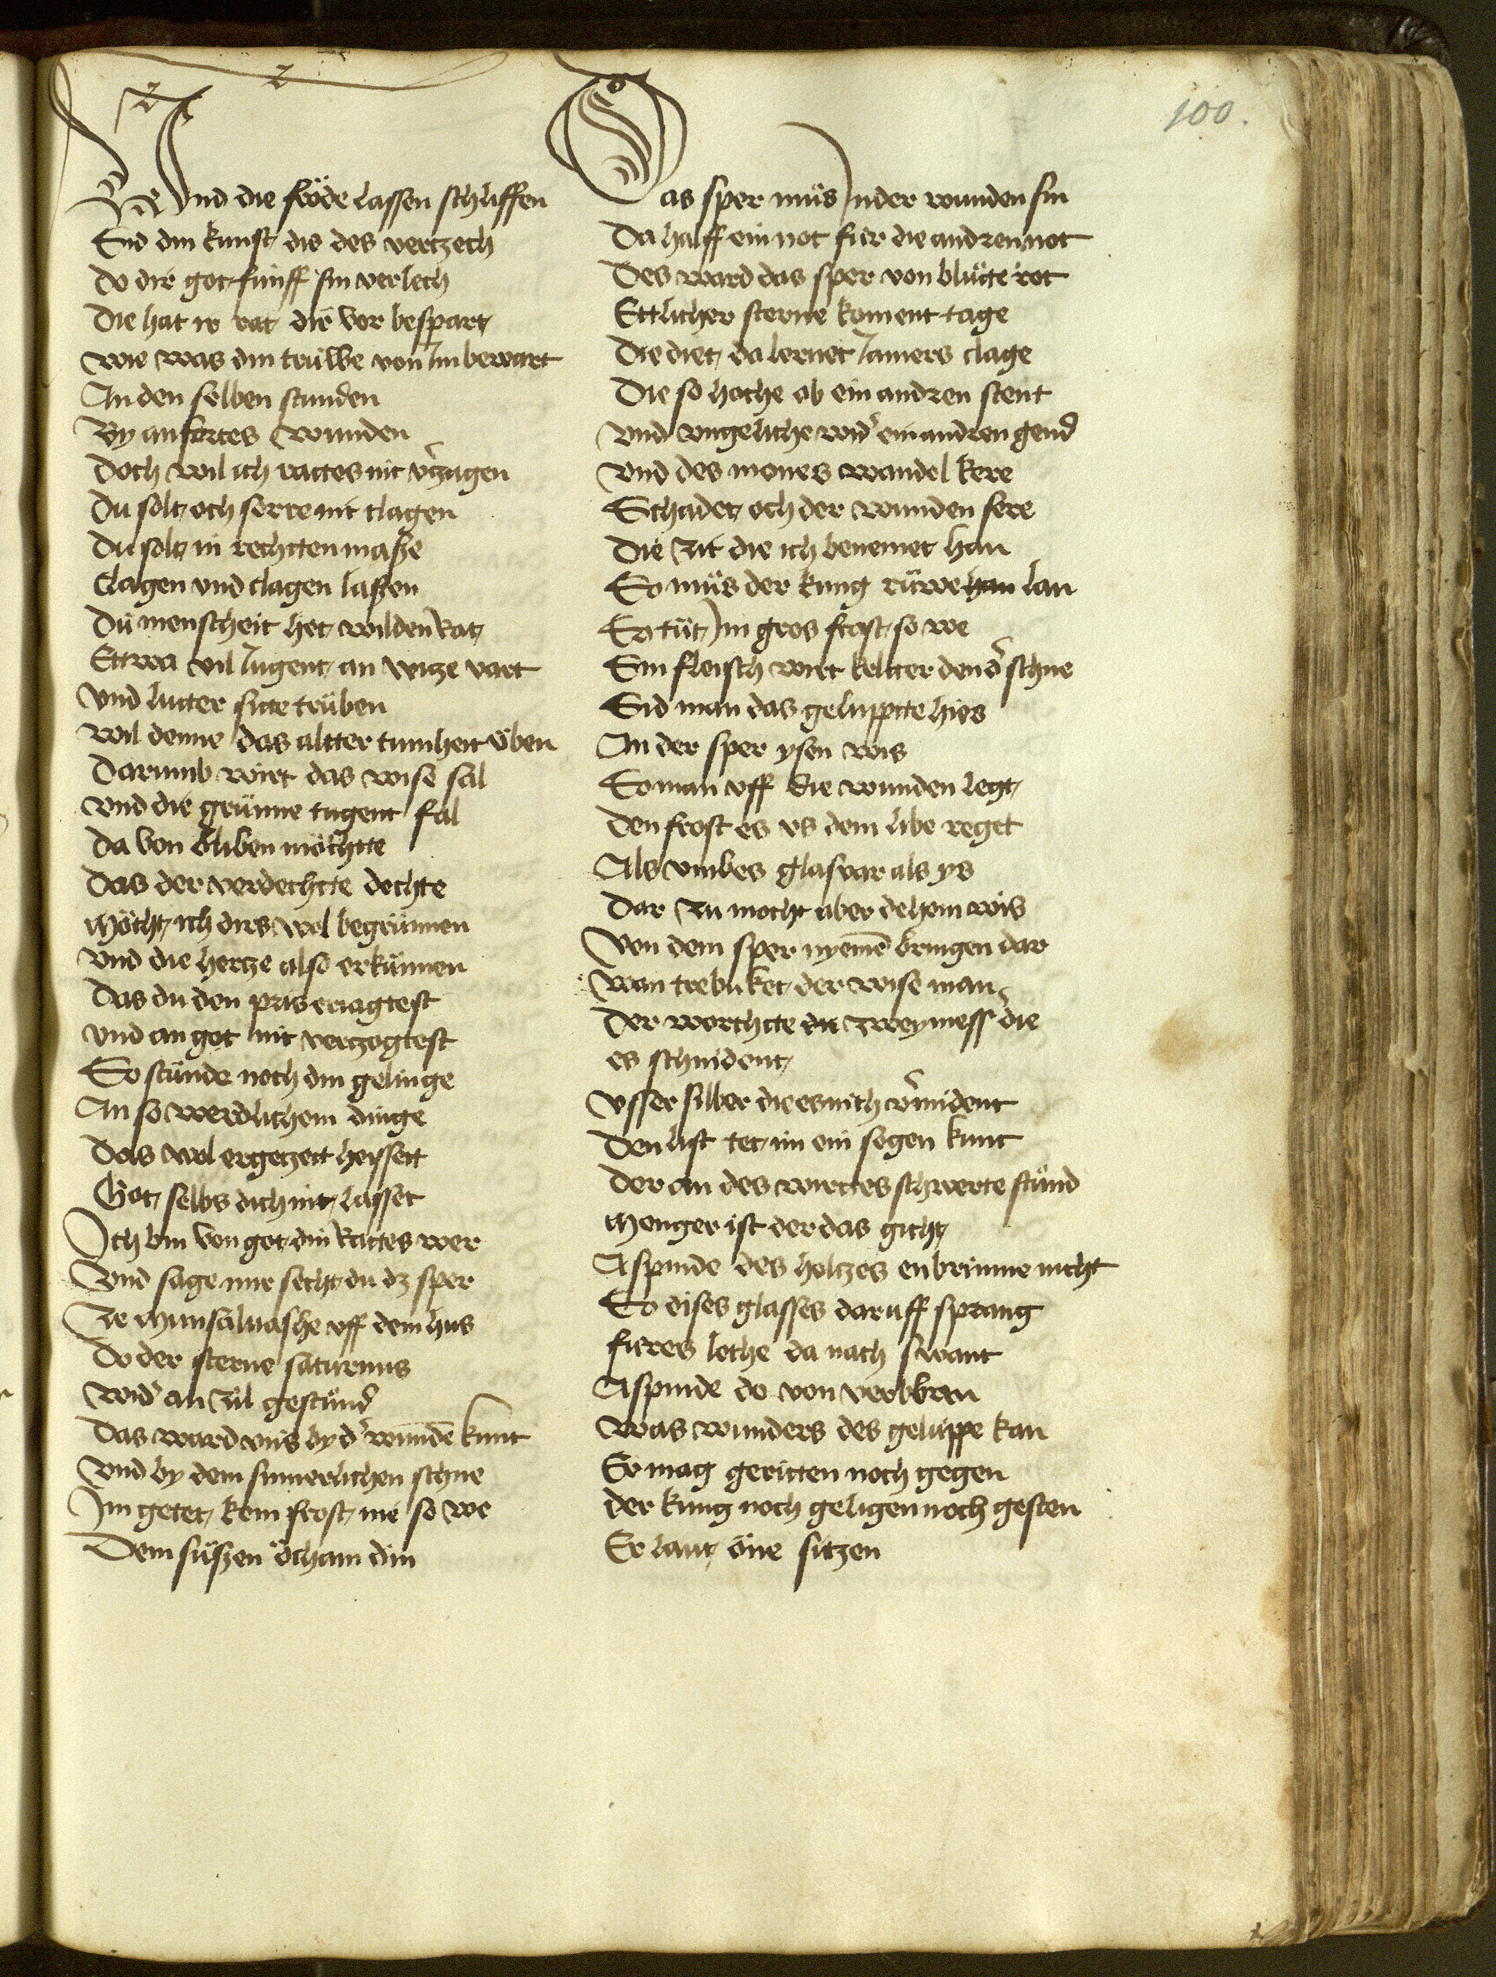 100.
Vnd die fröde lassen schliffen
Sid din kunst die des vertzech
Do dir got fúnff sin verlech
Die hat ir rat dir vor bespart
Wie was din trúwe von Im bewart
An den selben stunden
By anfortes wunden
Doch wil ich rattes nit vˀzagen
Du solt och serre nit clagen
Du solt in rechtten masse
Clagen vnd clagen lassen
Dú menscheit het wilden rat
Ettwa wil Iugent an witze vart
Vnd lutter sitte trüben
Wil denne das altter tumheit üben
Darumb wirt das wise sal
Vnd die grünne tugent fal
Da von bliben möchtte
Das der werdechtte dochte
Möcht ich dirs wol begrünnen
Vnd die hertze also erkünnen
Das du den pris eriagtest
Vnd an got nit vertzagtest
So stúnde noch din gelinge
An so werdlichem dinge
Das wol ergetzett heyssett
Got selbs dich nit lasset
Ich bin von got din rattes wer
Vnd sage mir secht du dz sper
Ze munsaluashe vff dem hus
Do der sterne saturnus
Widˀ an zil gestúnd
Das ward vns by dˀ wunde kunt
Vnd by dem sumerlichen schne
Im getet kein frost nie so we
Dem süssen öcham din
Das sper müs Inder wunden sin
Da halff ein not fúr die andren not
Des ward das sper von blüte rot
Ettlicher sterne koment tage
Die diet da lernet Iamers clage
Die so hoche ob ein andren stent
Vnd vngeliche widˀ ein andren gend
Vnd des mones wandel kere
Schadet och der wunden sere
Die zit die ich benemet han
So müs der kung rüwe han lan
So tüt Im gros frost so we
Sin fleisch wirt keltter den dˀ schne
Sid man das geluppte hies
An der sper ysen wis
So man vff die wunden legt
Den frost es vs dem libe reget
Als vmbes glasvar als ys
Dar zu mocht aber dehein wis
Von dem sper nyemē bringen dar
Wan trebuket der wise man
Der worchtte die zwey messˀ die
es schnident
Vsser silber die es nich vˀmident
Den list tet im ein segen kunt
Der an des wirttes schwerte stúnd
Menger ist der das gicht
Aspinde des holtzes enbrinne nicht
So dises glasses daruff sprang
fúres lohe da nach swant
Aspinde do von verbbran
Was wunders des geluppe kan
Er mag geritten noch gegen
der kung noch geligen noch gesten
Er lant öne sitzen